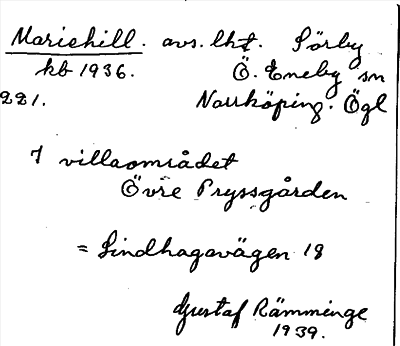 Mariehill. avs. lht. Sörby
kb 1936. Ö. Eneby sn
221. Norrköping. Ögl
I villaområdet
Övre Pryssgården
= Lindhagavägen 18
Gustaf Rämminge
1939.